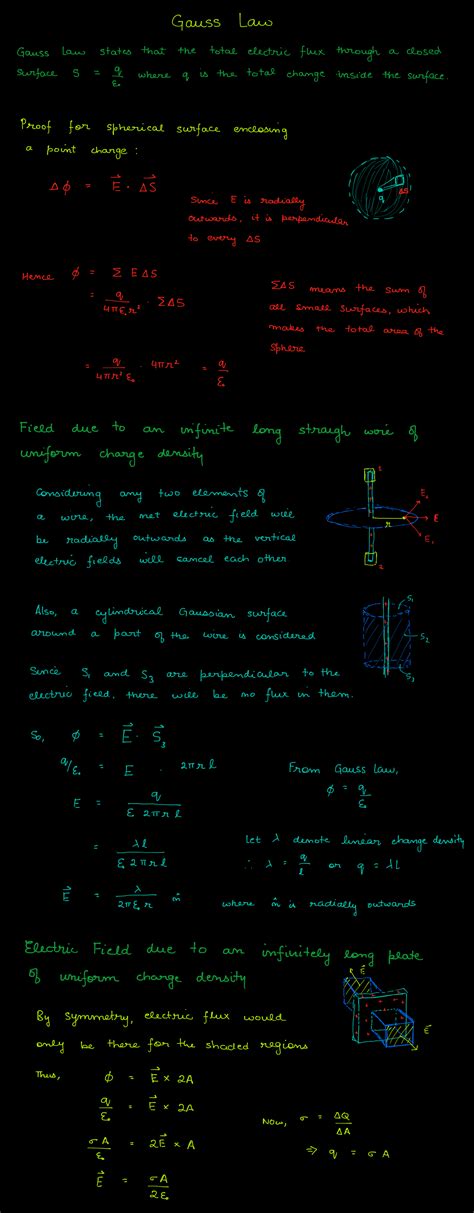 Gauss Law
Gauss Law states that the total electric flux through a closed
surface S = q/ε₀ where q is the total change inside the surface.
Proof for spherical surface enclosing
a point charge :
Δφ = E⃗ · ΔS⃗
Since E is radially
outwards, it is perpendicular
to every ΔS
q
ΔS
Hence φ = Σ E ΔS
= q/4πε₀r² · ΣΔS
ΣΔS means the sum of
all small surfaces, which
makes the total area of the
sphere
= q/4πr²ε₀ · 4πr² = q/ε₀
Field due to an infinite long straigh wire of
uniform charge density
Considering any two elements of
a wire, the net electric field will
be radially outwards as the vertical
electric fields will cancel each other
1
E₂
E
r
E₁
2
Also, a cylindrical Gaussian surface
around a part of the wire is considered
S₁
S₂
S₃
Since S₁ and S₃ are perpendicular to the
electric field, there will be no flux in them.
So, φ = E⃗ · S⃗₃
q/ε₀ = E · 2πrl
From Gauss Law,
φ = q/ε₀
E = q/ε₀ 2πrl
= λl/ε₀ 2πrl
Let λ denote linear change density
∴ λ = q/l or q = λl
E⃗ = λ/2πε₀r m̂
where m̂ is radially outwards
Electric Field due to an infinitely long plate
of uniform charge density
E⃗
E⃗
By symmetry, electric flux would
only be there for the shaded regions
Thus, φ = E⃗ × 2A
q/ε₀ = E⃗ × 2A
Now, σ = ΔQ/ΔA
σA/ε₀ = 2E⃗ × A
⇒ q = σA
E⃗ = σA/2ε₀